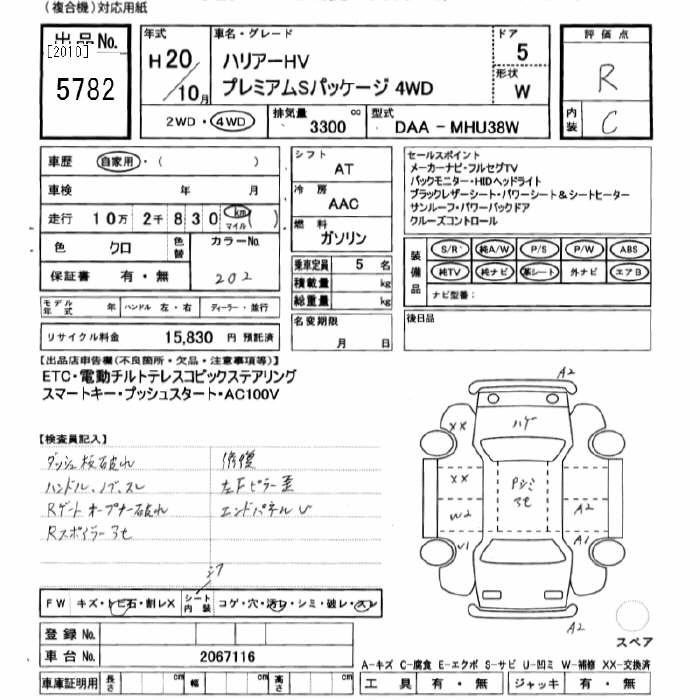 (複合機)対応用紙
出品No.
[2010]
5782
年式
H20
10月
車名・グレード
ハリアーHV
プレミアムSパッケージ 4WD
ドア
5
形状
W
2WD・4WD
排気量
3300 cc
型式
DAA - MHU38W
評価点
R
内装
C
車歴 自家用・( )
車検 年 月
走行 10万 2千 830 km マイル ( )
色 クロ 色替 カラーNo.
202
保証書 有・無
モデル年式 年 ハンドル 左・右 ディーラー・並行
リサイクル料金 15,830 円 預託済
シフト
AT
冷房
AAC
燃料
ガソリン
乗車定員 5 名
積載量 kg
総重量 kg
名変期限
月 日
セールスポイント
メーカーナビ・フルセグTV
バックモニター・HIDヘッドライト
ブラックレザーシート・パワーシート&シートヒーター
サンルーフ・パワーバックドア
クルーズコントロール
装備品
S/R 純A/W P/S P/W ABS
純TV 純ナビ 革シート 外ナビ エアB
ナビ型番:
後日品
【出品店申告欄(不良箇所・欠品・注意事項等)】
ETC・電動チルトテレスコピックステアリング
スマートキー・プッシュスタート・AC100V
【検査員記入】
ダッシュ板破れ
ハンドル、ノブ、スレ
Rゲートオープナー破れ
Rスポイラー
修復
左Fピラー歪
エンドパネルU
A2
ハゲ
XX
XX
W2
W1
A2
A1
A2
シワ
FW キズ・トビ石・割レX シート内装 コゲ・穴・汚レ・シミ・破レ・スレ
登録No.
車台No. 2067116
車庫証明用 長さ cm 幅 cm 高さ cm
スペア
A-キズ C-腐食 E-エクボ S-サビ U-凹ミ W-補修 XX-交換済
工具 有・無 ジャッキ 有・無